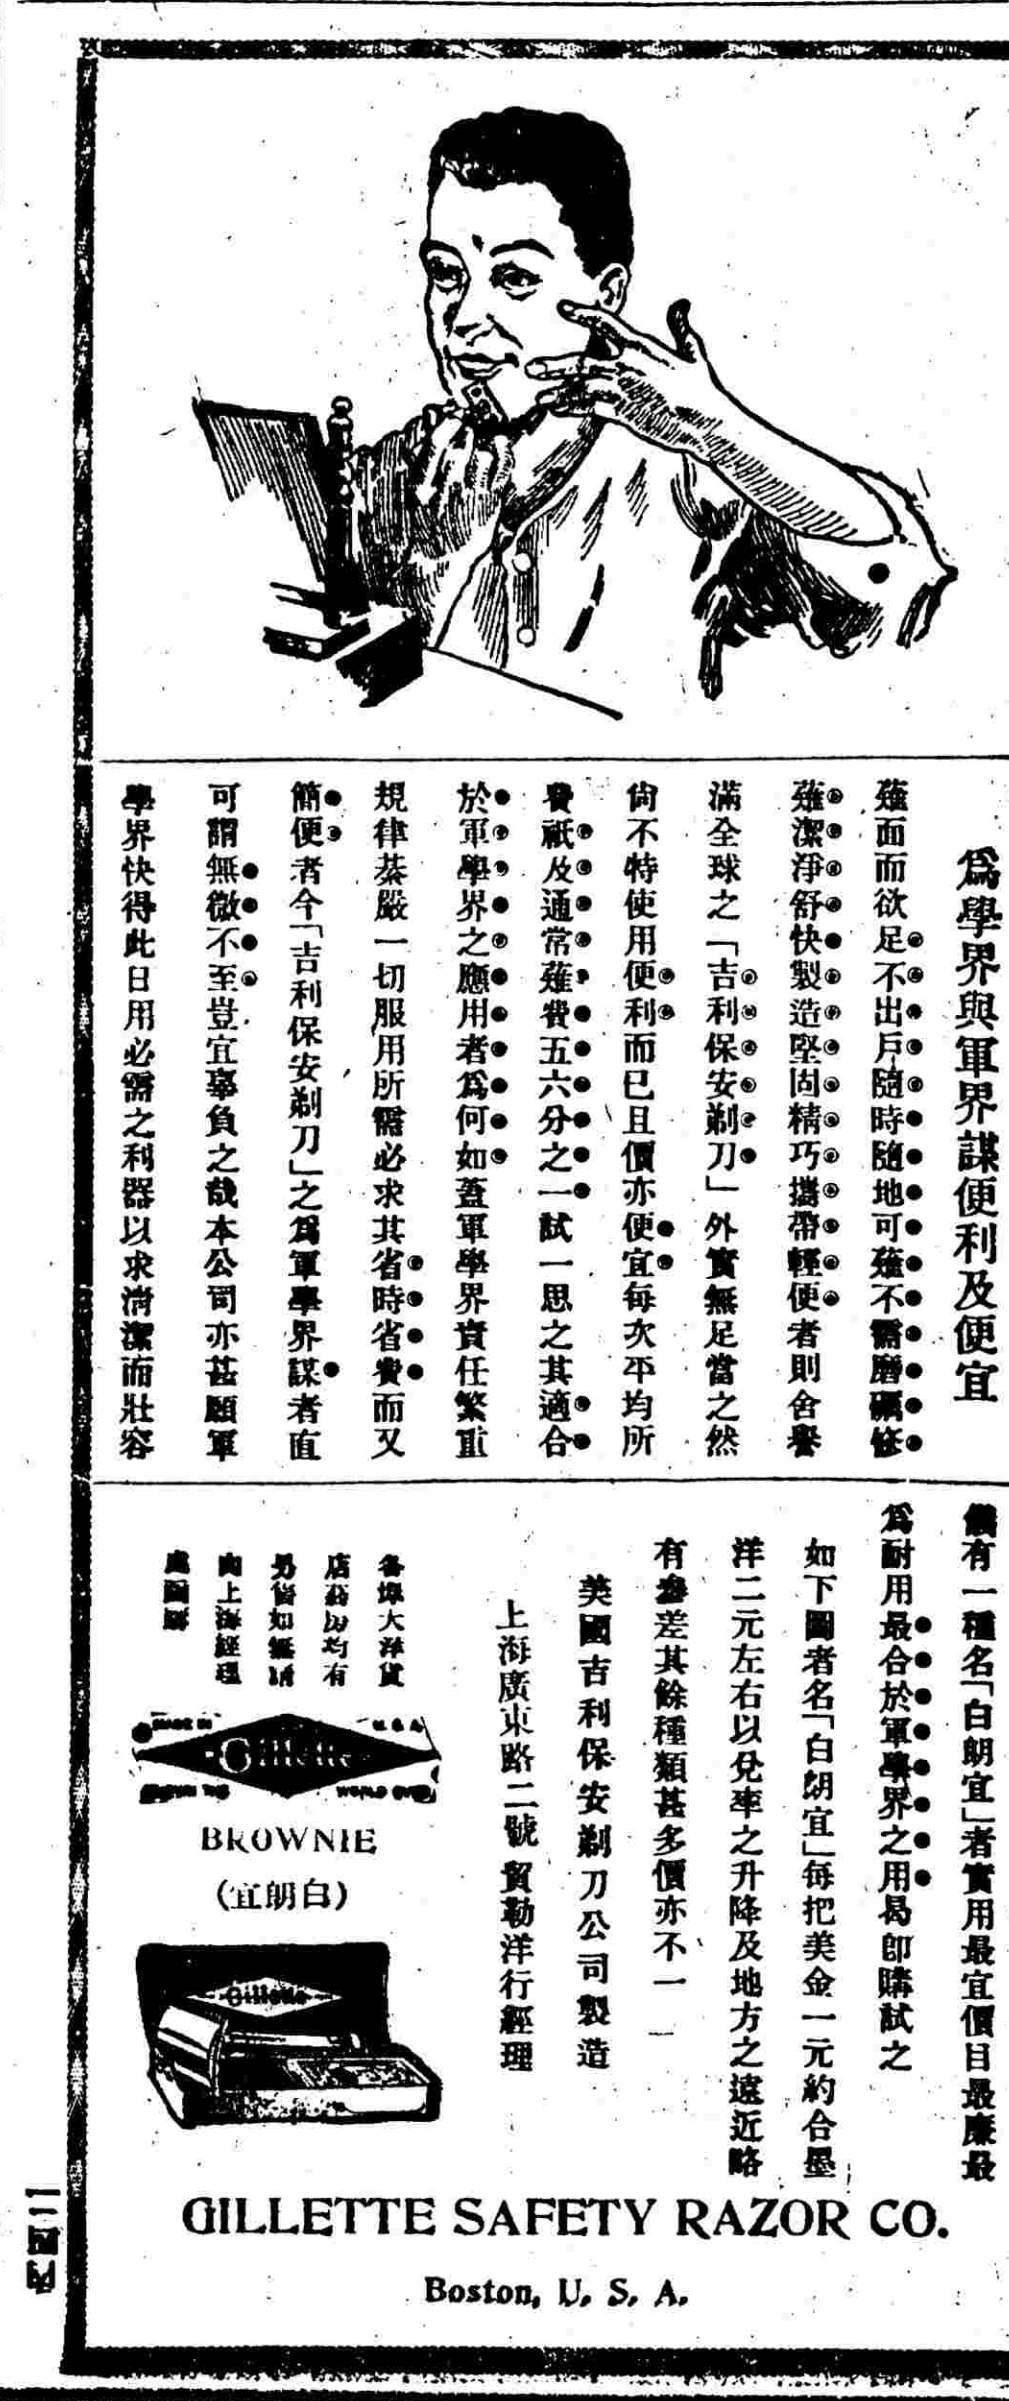 爲學界與軍界謀便利及便宜
薙面而欲足不出戶隨時隨地可薙不需磨礪修
薙潔淨舒快製造堅固精巧攜帶輕便者則舍譽
滿全球之「吉利保安剃刀」外實無足當之然
尙不特使用便利而已且價亦便宜每次平均所
費祇及通常薙費五六分之一試一思之其適合
於軍學界之應用者爲何如蓋軍學界責任繁重
規律綦嚴一切服用所需必求其省時省費而又
簡便者今「吉利保安剃刀」之爲軍學界謀者直
可謂無微不至豈宜辜負之哉本公司亦甚願軍
學界快得此日用必需之利器以求淸潔而壯容
儀有一種名「白朗宜」者實用最宜價目最廉最
爲耐用最合於軍學界之用曷卽購試之
如下圖者名「白朗宜」每把美金一元約合墨
洋二元左右以兌率之升降及地方之遠近略
有參差其餘種類甚多價亦不一
美國吉利保安剃刀公司製造
上海廣東路二號貿勒洋行經理
各埠大洋貨
店藥房均有
另售如無請
向上海經理
處函購
MADE IN U.S.A.
Gillette
KNOWN THE WORLD OVER
BROWNIE
(宜朗白)
Gillette
GILLETTE SAFETY RAZOR CO.
Boston, U. S. A.
內四二一